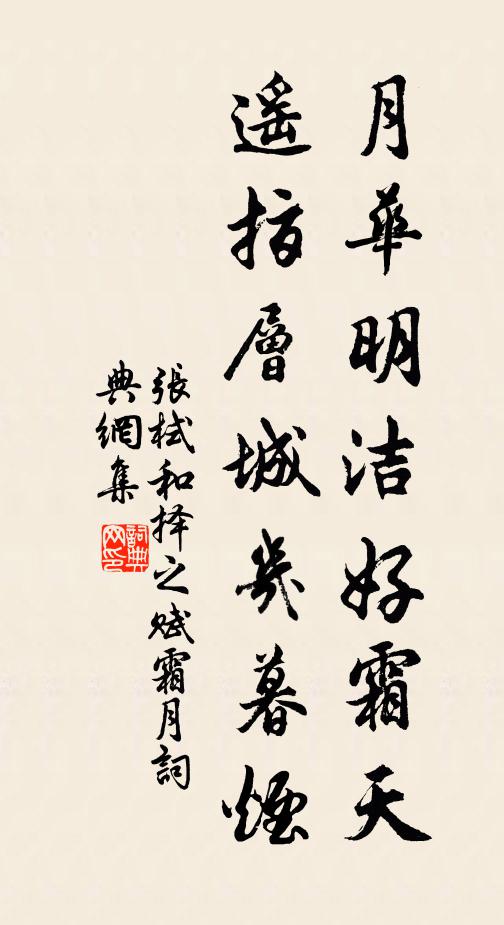 月華明洁好霜天
遥指層城幾暮煙
張栻和择之赋霜月詞
典網集
詞典网印